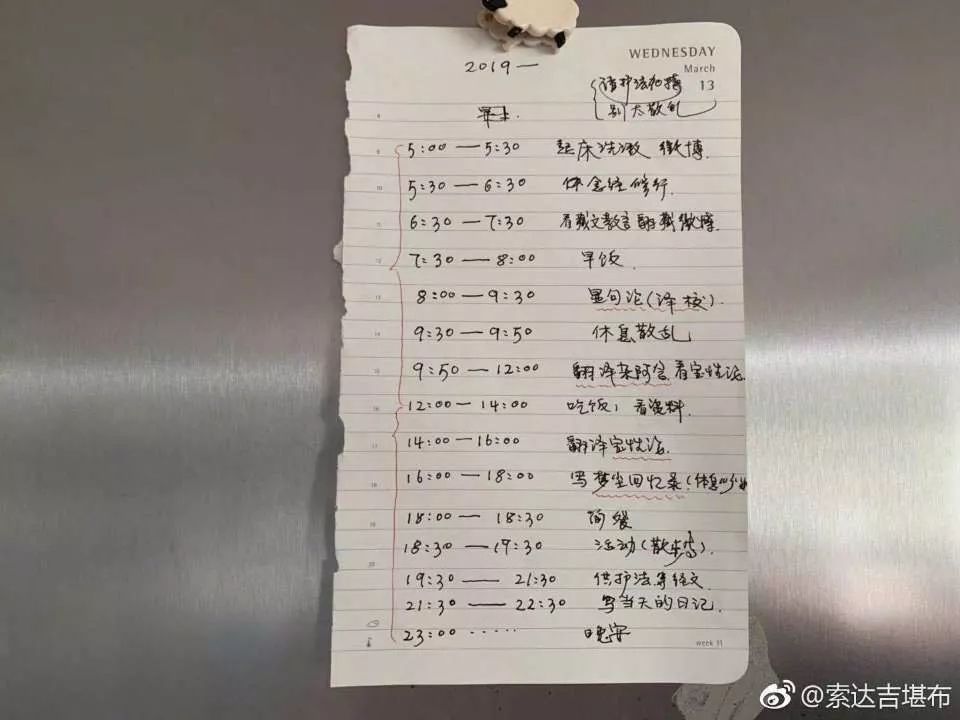 WEDNESDAY
March
13
2019一
请护法加持
别太散乱
5:00 — 5:30 起床洗漱 微博.
5:30 — 6:30 体念经修行.
6:30 — 7:30 看藏文教言翻藏微博.
7:30 — 8:00 早饭.
8:00 — 9:30 显句论(译校).
9:30 — 9:50 休息散乱
9:50 — 12:00 翻译杂阿含.看宝性论.
12:00 — 14:00 吃饭; 看资料.
14:00 — 16:00 翻译宝性论.
16:00 — 18:00 写梦尘回忆录(休息
18:00 — 18:30 简餐
18:30 — 19:30 活动(散步
19:30 — 21:30 供护法等经文
21:30 — 22:30 写当天的日记.
23:00 ····· 晚安
week 11
@索达吉堪布